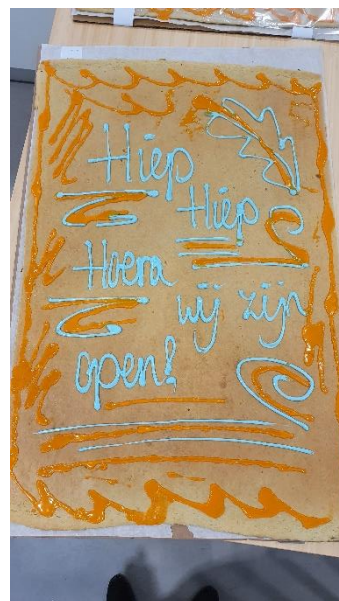 Hiep
Hiep
Hoera
wij zijn
open!